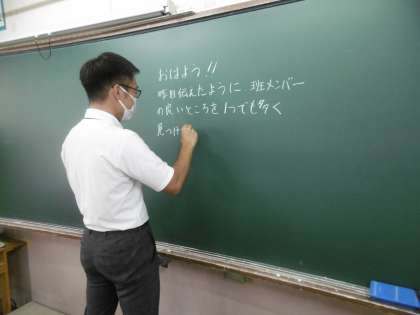 おはよう!!
昨日伝えたように 班メンバー
の良いところを1つでも多く
見つけ